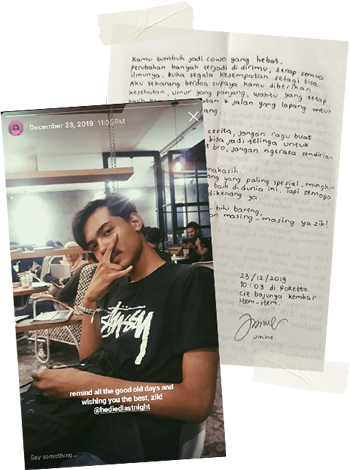 Kamu tumbuh jadi cowo yang hebat.
Perubahan banyak terjadi di dirimu, serap semua
ilmunya. Buka segala kesempatan sebagai bisa.
Aku sekarang berdoa supaya kamu diberikan
kesehatan, umur yang panjang, waktu yang tetap
& jalan yang lapang untuk
cerita, jangan ragu buat
bisa jadi telinga untuk
bro, jangan ngerasa sendirian
makasih
yang paling spesial, mungkin
baik di dunia ini. Tapi semoga
dikenang ya.
hiki bareng,
masing-masing ya zik!
23/12/2019
10:03 di Roketto
cie bajunya kembar
Hem-Hem.
Jmine
Jmine
December 23, 2019 11:05PM
STÜSSY
remind all the good old days and
wishing you the best, zik!
@hediedlastnight
Say something...